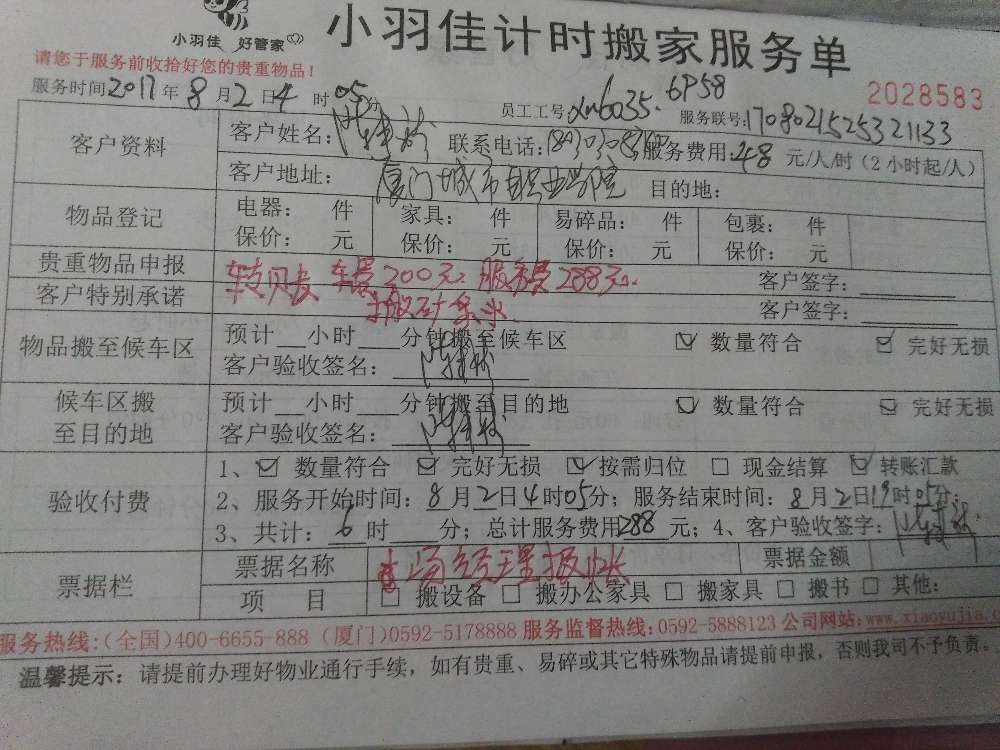 小羽佳 好管家
小羽佳计时搬家服务单
请您于服务前收拾好您的贵重物品!
2028583
服务时间2017年8月2日4时05分 员工工号xm6035. 6P58 服务联号:1708021525321133
客户资料 客户姓名: 联系电话: 服务费用:48元/人/时(2小时起/人)
客户地址: 厦门城市职业学院 目的地:
物品登记 电器: 件 家具: 件 易碎品: 件 包裹: 件
保价: 元 保价: 元 保价: 元 保价: 元
贵重物品申报 车费200元. 服务费288元. 客户签字:
客户特别承诺 客户签字:
物品搬至候车区 预计__小时___分钟搬至候车区 ☑ 数量符合 ☑ 完好无损
客户验收签名:
候车区搬至目的地 预计__小时___分钟搬至目的地 ☑ 数量符合 ☑ 完好无损
客户验收签名:
验收付费 1、☑ 数量符合 ☑ 完好无损 ☑ 按需归位 □ 现金结算 ☑ 转账汇款
2、服务开始时间:8月2日4时05分;服务结束时间:8月2日19时05分;
3、共计:6时 分;总计服务费用288元;4、客户验收签字:
票据栏 票据名称 市场经理报帐 票据金额
项 目 □ 搬设备 □ 搬办公家具 □ 搬家具 □ 搬书 □ 其他:
服务热线:(全国)400-6655-888 (厦门)0592-5178888 服务监督热线:0592-5888123 公司网站:www.xiaoyujia.
温馨提示:请提前办理好物业通行手续,如有贵重、易碎或其它特殊物品请提前申报,否则我司不予负责。